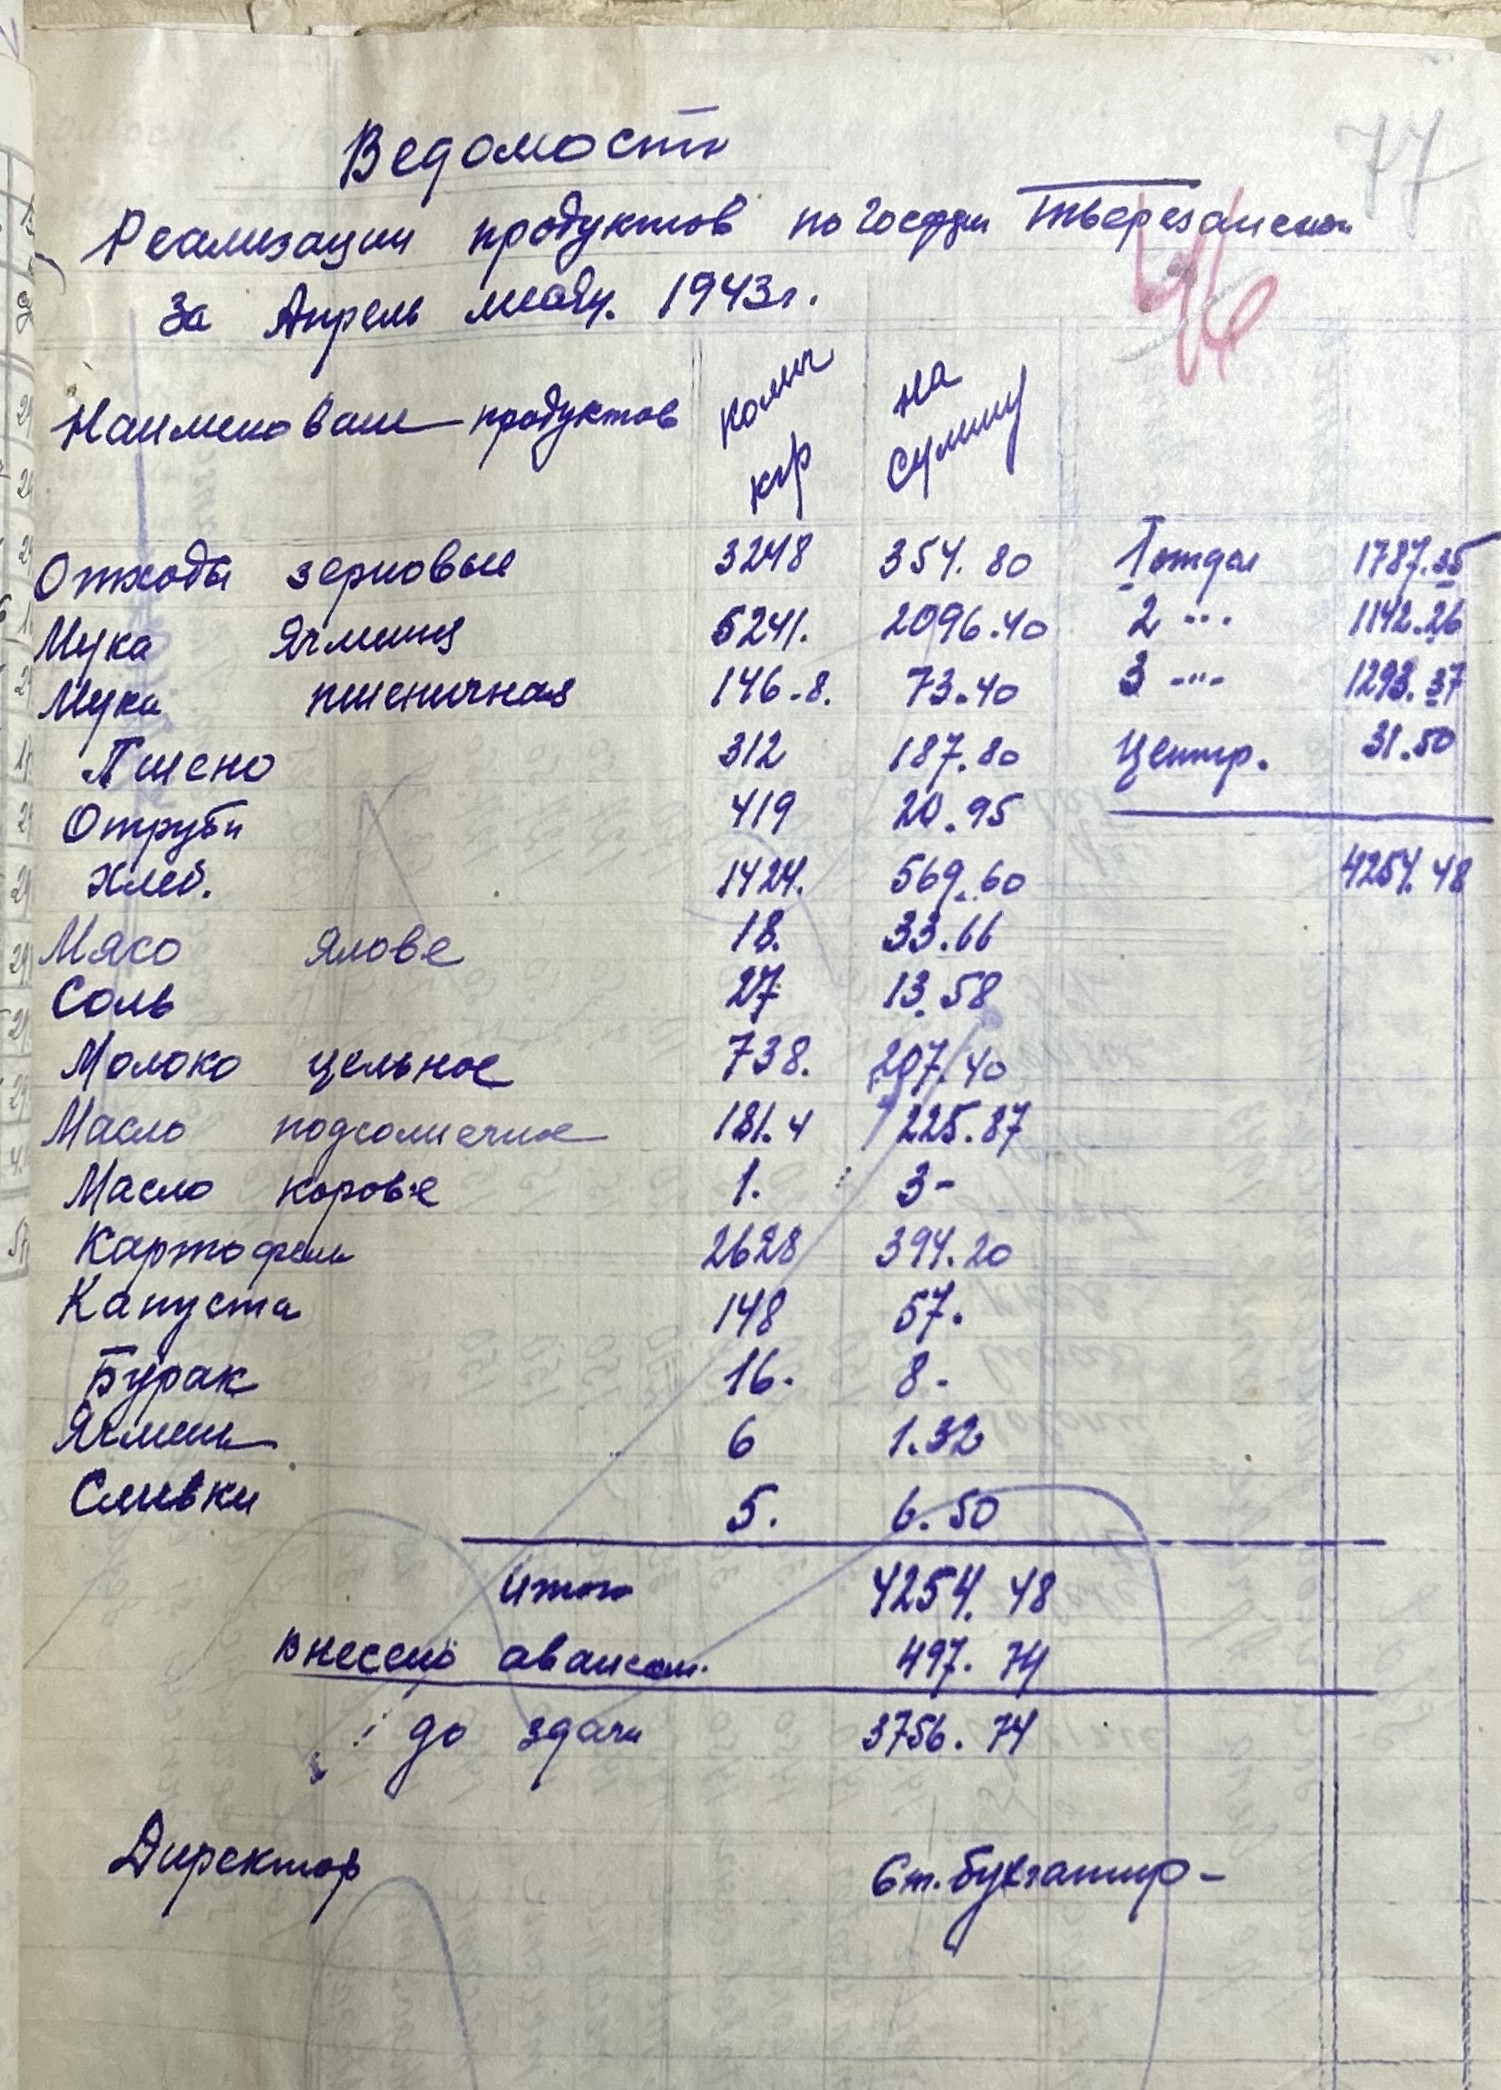 77
Ведомость
Реализации продуктов по Тверезанской
46
За Апрель месяц. 1943г.
Наименование продуктов колич кгр на сумму
Отходы зерновые 3248 354.80 1 отдел 1787.35
Мука Ячмин 5241. 2096.40 2 -"- 1142.26
Мука пшеничная 146.8. 73.40 3 -"- 1293.37
Пшено 312 187.80 Центр. 31.50
Отруби 419 20.95
Хлеб. 1424. 569.60 4254.48
Мясо Ялове 18. 33.66
Соль 27 13.58
Молоко цельное 738. 207.40
Масло подсолнечное 181.4 225.87
Масло коровье 1. 3-
Картофель 2628 394.20
Капуста 148 57.
Бурак 16. 8-
Ячмень 6 1.32
Сливки 5. 6.50
Итого 4254.48
Внесено авансом. 497.74
до здачи 3756.74
Директор Ст. бухгалтер-